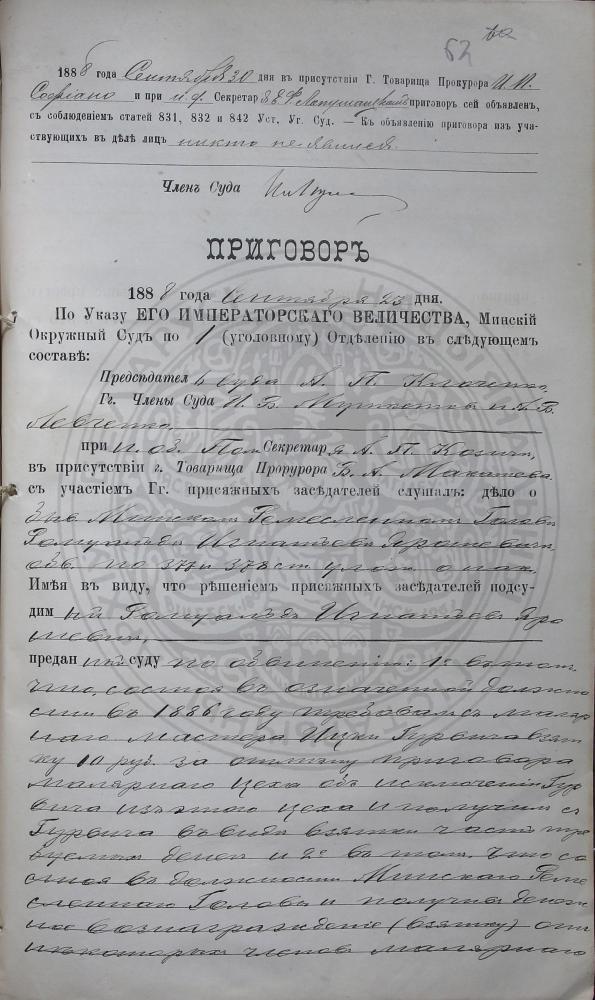 62
1888 года Сентября 30 дня въ присутствіи Г. Товарища Прокурора И. И.
Софіано и при и. ф. Секретар приговоръ сей объявленъ,
съ соблюденіемъ статей 831, 832 и 842 Уст. Уг. Суд. — Къ объявленію приговора изъ уча-
ствующихъ въ дѣлѣ лицъ никто не явился
Членъ Суда
ПРИГОВОРЪ
1888 года Сентября 23 дня.
По Указу ЕГО ИМПЕРАТОРСКАГО ВЕЛИЧЕСТВА, Минскій
Окружный Судъ по 1 (уголовному) Отдѣленію въ слѣдующемъ
составѣ:
Предсѣдателѣ Суда А. П.
Гг. Члены Суда И. В. и А. В.
Левченко,
при И. об. Пом. Секретаря А. П.
въ присутствіи г. Товарища Прорурора Б. А. Макатова
съ участіемъ Гг. присяжныхъ засѣдателей слушалъ: дѣло о
быв. Минскомъ Ремесленномъ Головѣ
Ромуальдѣ Игнатьевѣ Ярошевичѣ
обв. по 377 и 378 ст улож. о нак.
Имѣя въ виду, что рѣшеніемъ присяжныхъ засѣдателей подсу-
димый Ромуальдъ Игнатьевъ Яро
шевичъ,
преданный суду по обвиненію: 1е въ томъ
что, состоя въ означенной должно
сти въ 1886 году требовалъ съ маляр
наго мастера Ицки Гурвича взят
ку 10 руб. за отмѣну приговора
малярнаго цеха объ исключеніи Гур
вича изъ этого цеха и получилъ съ
Гурвича въ видѣ взятки часть тре
буемыхъ денегъ и 2е въ томъ, что со
стоя въ должности Минскаго Реме
сленнаго Головы и получивъ денеж
ное вознагражденіе (взятку) отъ
нѣкоторыхъ членовъ малярнаго